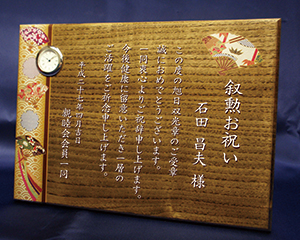 叙勲お祝い
石田 昌夫 様
この度の旭日双光章のご受章
誠におめでとうございます。
一同衷心よりご祝辞申し上げます。
今後健康に留意いただき一層の
ご活躍をご祈念申し上げます。
平成二十三年四月吉日
親睦会会員一同